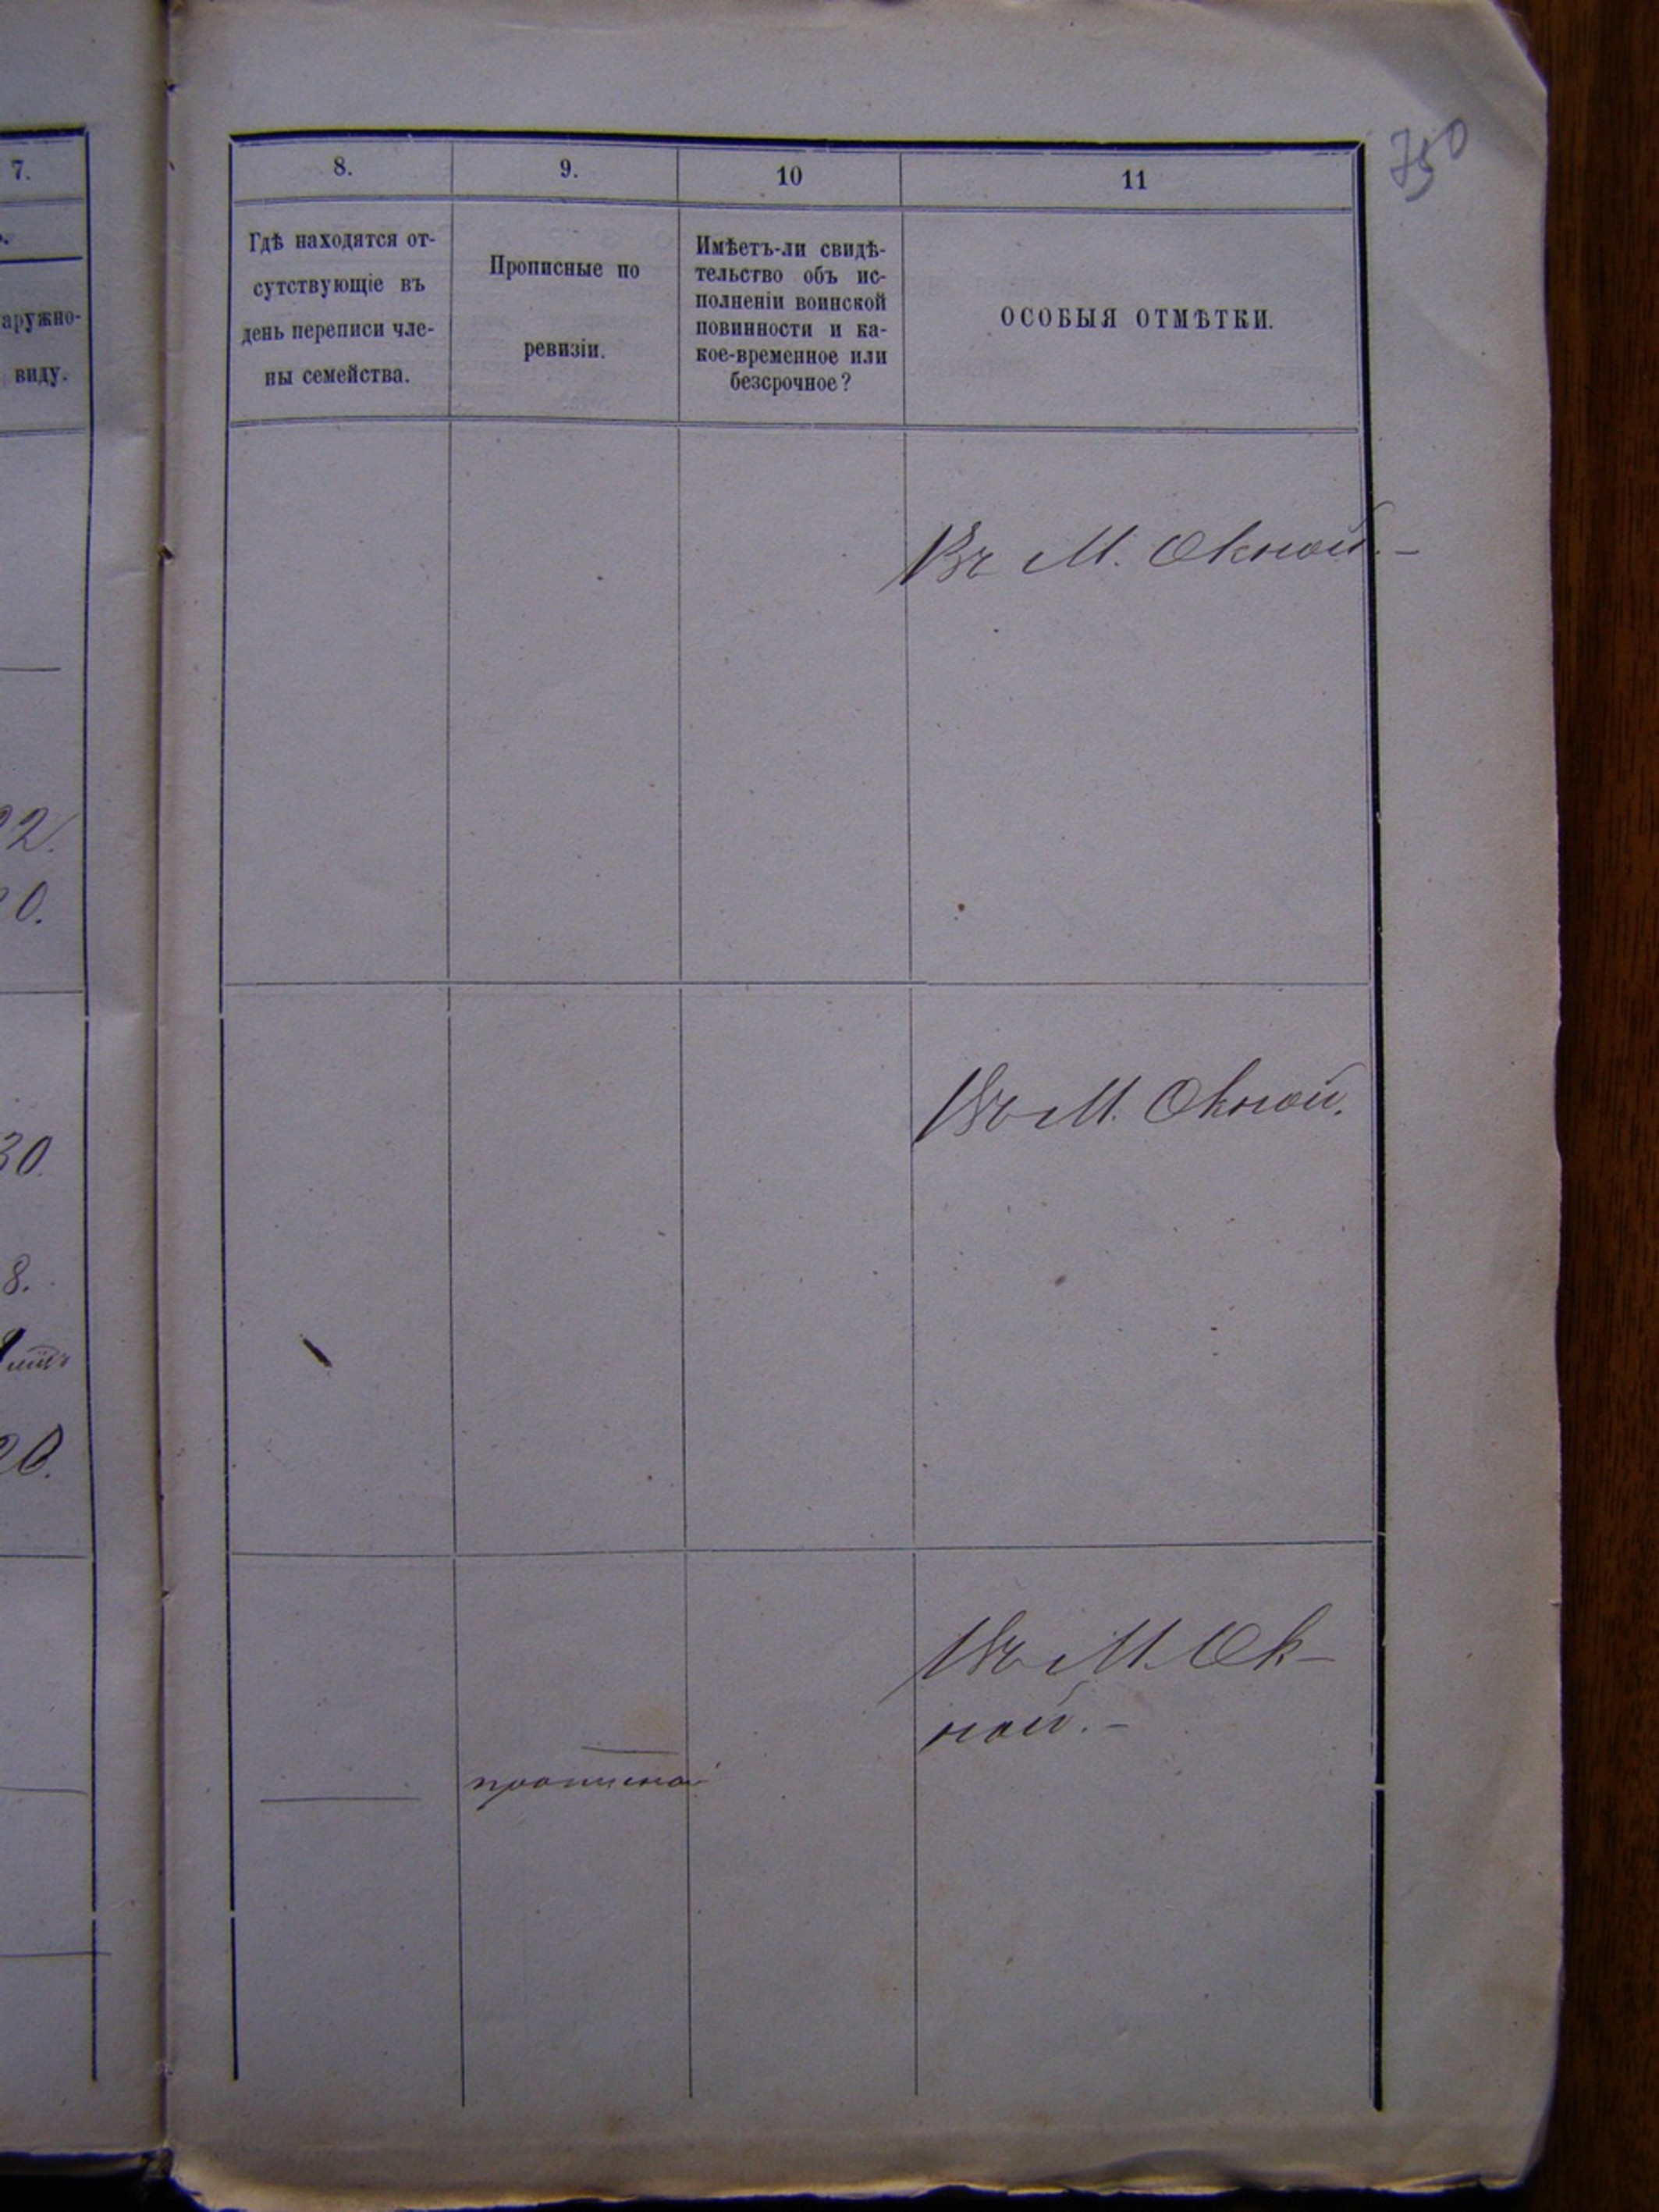 750
7.
8.
9.
10
11
аружно-
виду.
Гдѣ находятся от-
сутствующіе въ
день переписи чле-
ны семейства.
Прописные по
ревизіи.
Имѣетъ-ли свидѣ-
тельство объ ис-
полненіи воинской
повинности и ка-
кое-временное или
безсрочное?
ОСОБЫЯ ОТМѢТКИ.
Въ М. Окной.-
22.
20.
Въ М. Окной.
30.
8.
20.
Въ М. Ок-
ной.-
прописной